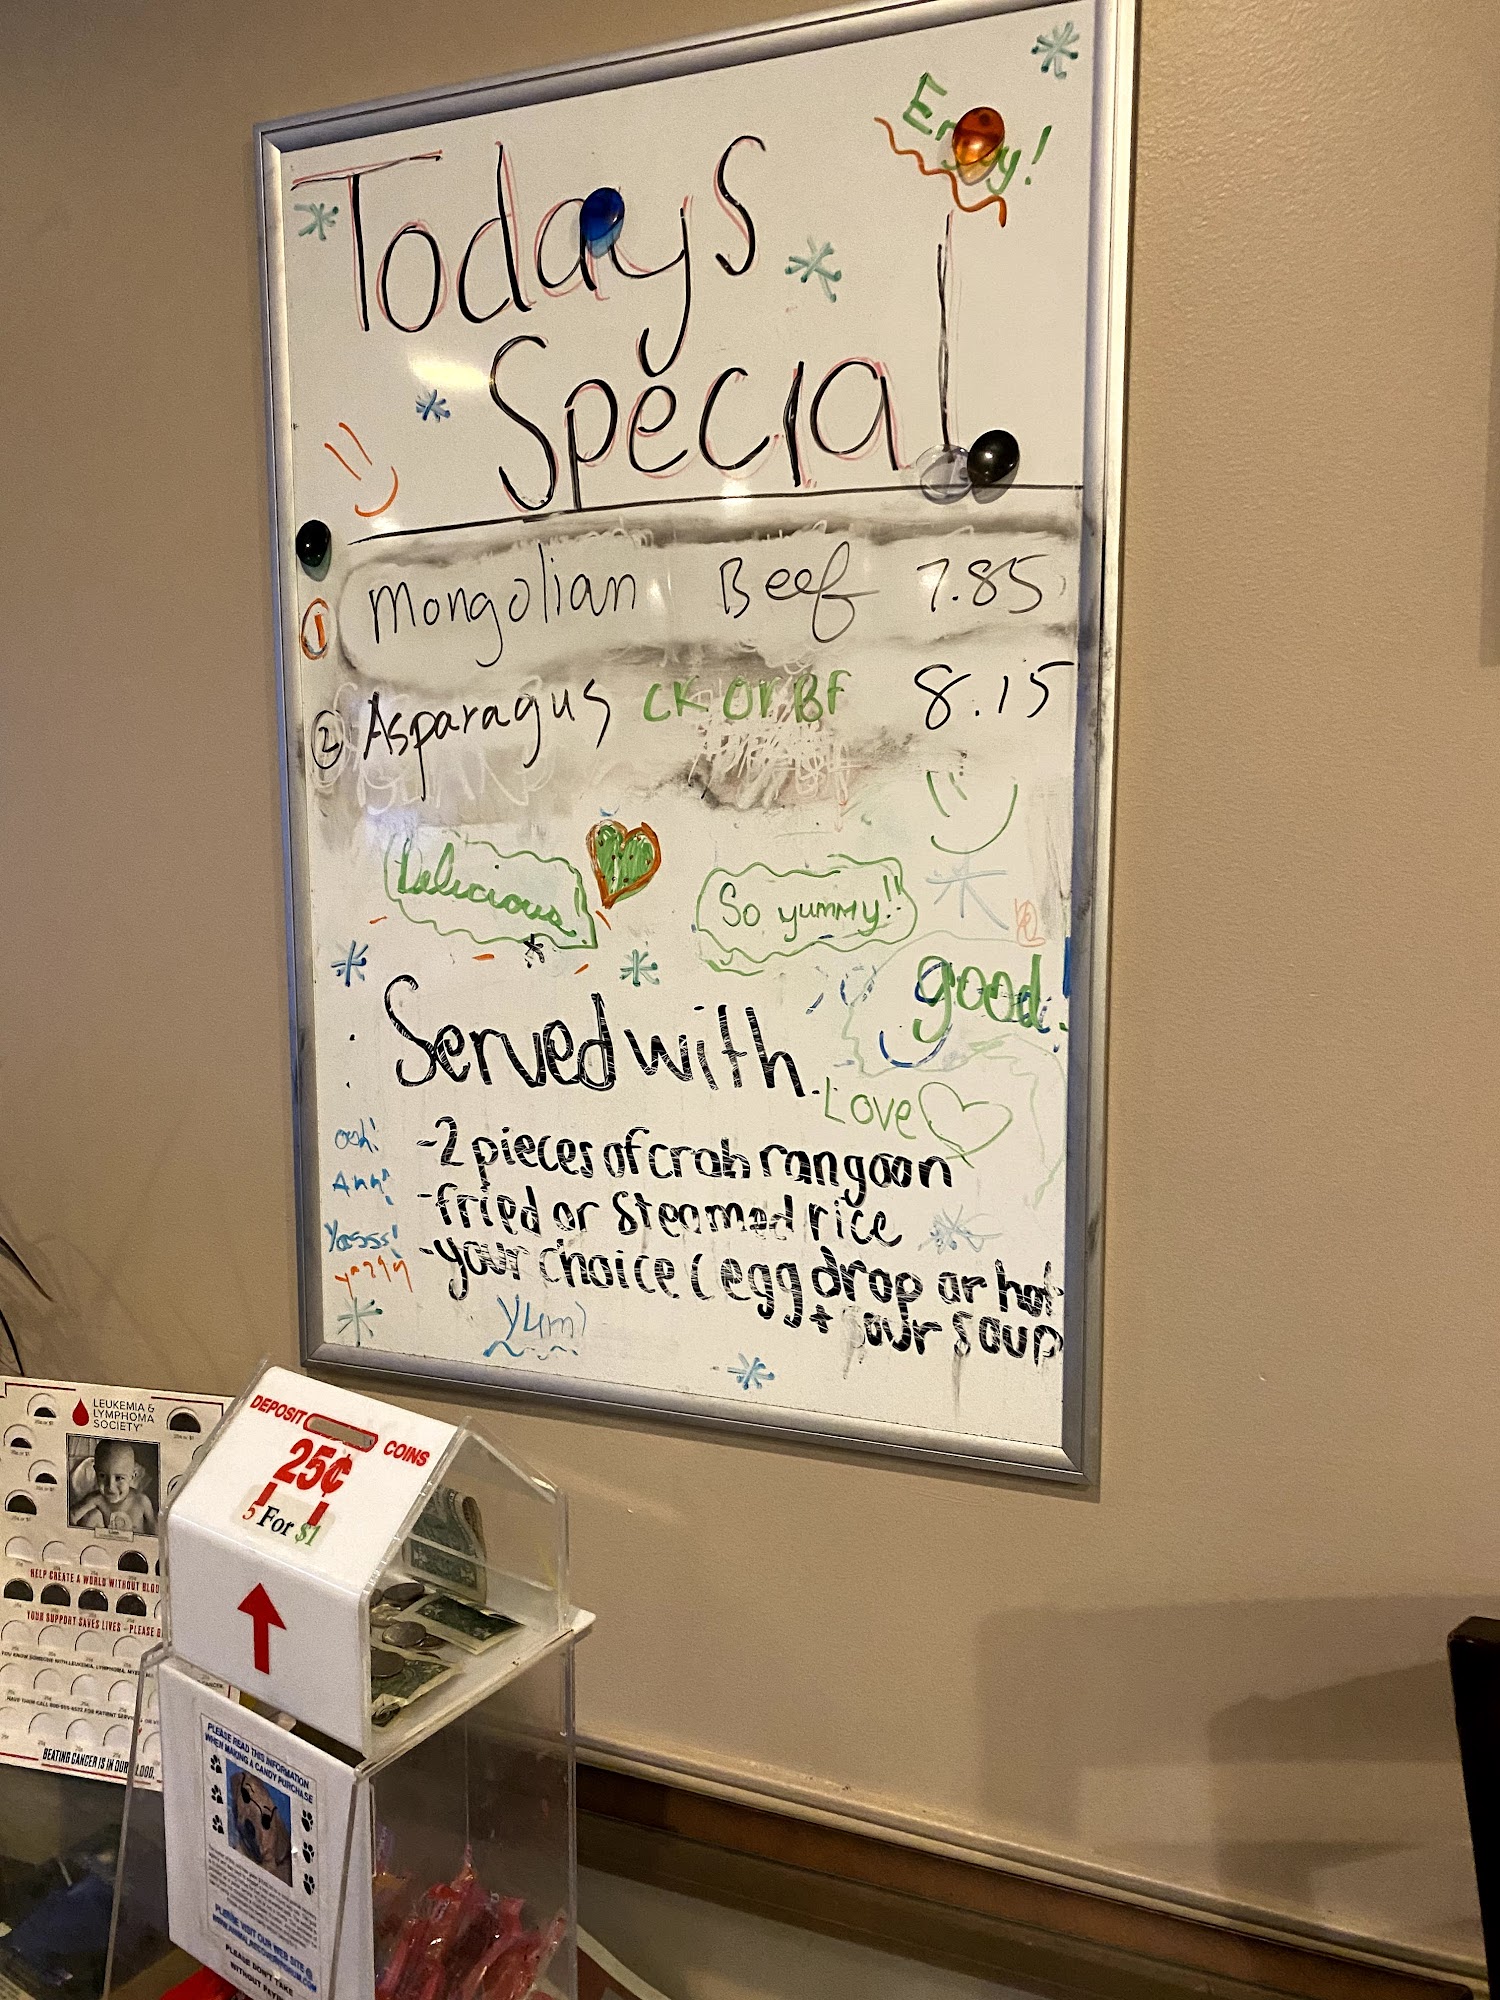 Enjoy!
Todays
Special
① Mongolian Beef 7.85
② Asparagus CK Or BF 8.15
Delicious!
So yummy!!
good!
Served with
Love
-2 pieces of crab rangoon
-fried or steamed rice
-your choice (egg drop or hot
+ sour soup
ooh!
Ahh!
Yasss!
Yum)
LEUKEMIA &
LYMPHOMA
SOCIETY
HELP CREATE A WORLD WITHOUT BLOO
YOUR SUPPORT SAVES LIVES - PLEASE
BEATING CANCER IS IN OUR BLOOD.
DEPOSIT COINS
25¢
5 For $1
PLEASE READ THIS INFORMATION
WHEN MAKING A CANDY PURCHASE
PLEASE VISIT OUR WEB SITE @
PLEASE DON'T TAKE
WITHOUT PAYI